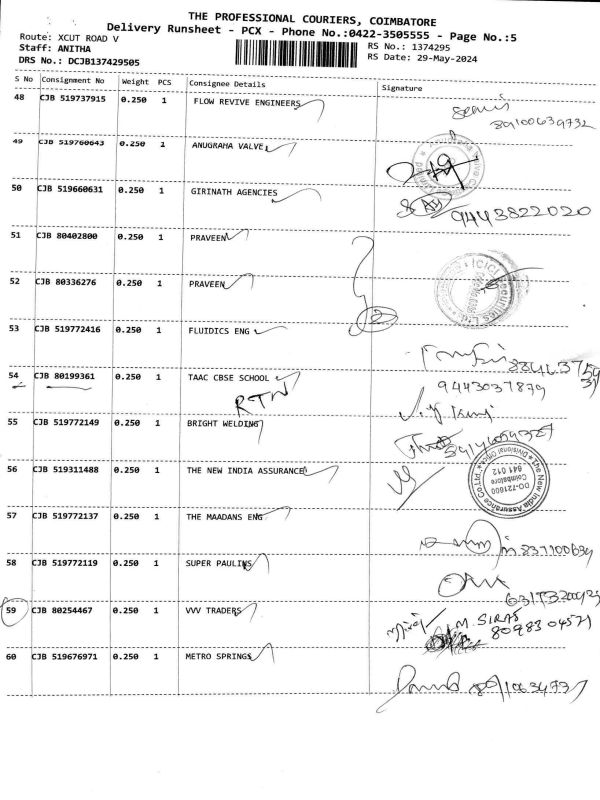 THE PROFESSIONAL COURIERS, COIMBATORE
Delivery Runsheet - PCX - Phone No.:0422-3505555 - Page No.:5
Route: XCUT ROAD V
RS No.: 1374295
Staff: ANITHA
RS Date: 29-May-2024
DRS No.: DCJB137429505
S No Consignment No Weight PCS Consignee Details Signature
48 CJB 519737915 0.250 1 FLOW REVIVE ENGINEERS
89100639732
49 CJB 519760643 0.250 1 ANUGRAHA VALVE
50 CJB 519660631 0.250 1 GIRINATH AGENCIES
9443822020
51 CJB 80402800 0.250 1 PRAVEEN
52 CJB 80336276 0.250 1 PRAVEEN
ICICI Securities Ltd
2
53 CJB 519772416 0.250 1 FLUIDICS ENG
54 CJB 80199361 0.250 1 TAAC CBSE SCHOOL
9443037879
RTN
55 CJB 519772149 0.250 1 BRIGHT WELDING
56 CJB 519311488 0.250 1 THE NEW INDIA ASSURANCE
The New India Assurance Co.Ltd.,
Divisional Office
DO-721600
Coimbatore
641 012
57 CJB 519772137 0.250 1 THE MAADANS ENG
837100639
58 CJB 519772119 0.250 1 SUPER PAULINS
59 CJB 80254467 0.250 1 VVV TRADERS
M. SIRAJ
8098304571
60 CJB 519676971 0.250 1 METRO SPRINGS